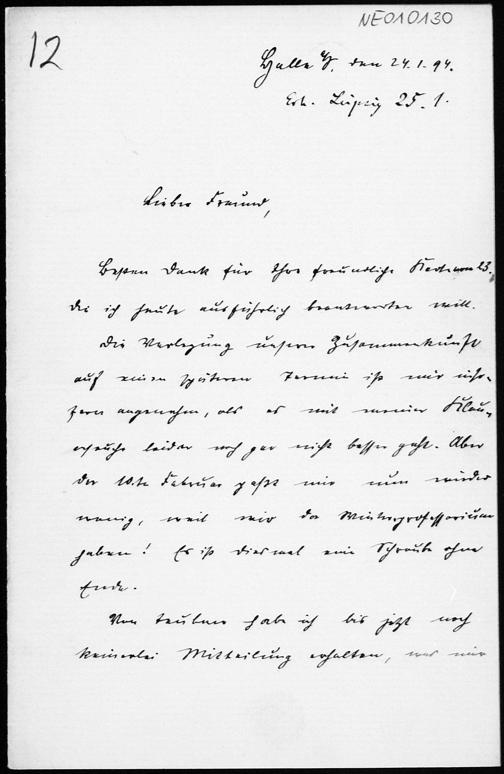 NE010130
12
Halle a/S. den 24.1.94.
Erh. Leipzig 25.1.
Lieber Freund,
Besten Dank für Ihre freundliche Karte vom 23.,
die ich heute ausführlich beantworten will.
Die Verlegung unserer Zusammenkunft
auf einen späteren Termin ist mir inso-
fern angenehm, als es mit meiner
leider noch gar nicht besser geht. Aber
der 10te Februar paßt mir nun wieder
wenig, weil wir da Winterprofessorium
haben! Es ist diesmal eine Schraube ohne
Ende.
Von Teubner habe ich bis jetzt noch
keinerlei Mittheilung erhalten, was mir